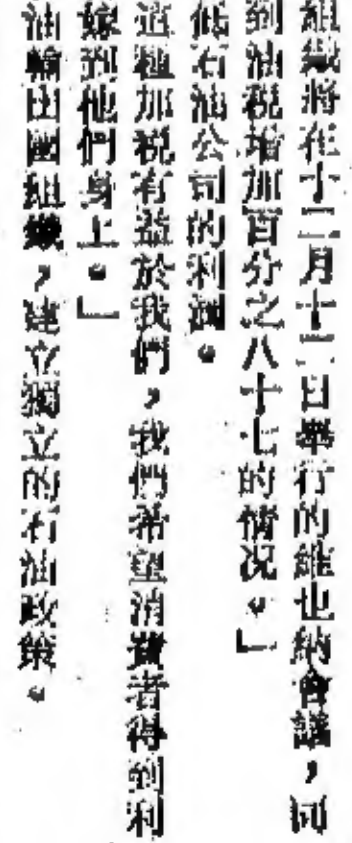 組織將在十二月十二日舉行的維也納會議，同
到油稅增加百分之八十七的情況。」
低石油公司的利潤。
這種加稅有益於我們，我們希望消費者得到利
嫁到他們身上。」
油輸出國組織，建立獨立的石油政策。